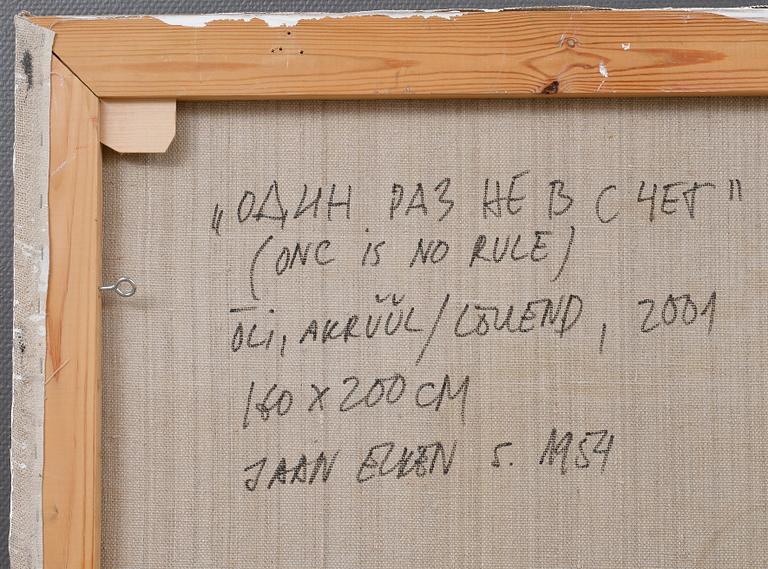 „ОДИН РАЗ НЕ В СЧЕТ"
(ONC IS NO RULE)
ÕLI, AKRÜÜL/LÕUEND, 2001
160 X 200 CM
JAAN ELKEN S. 1954